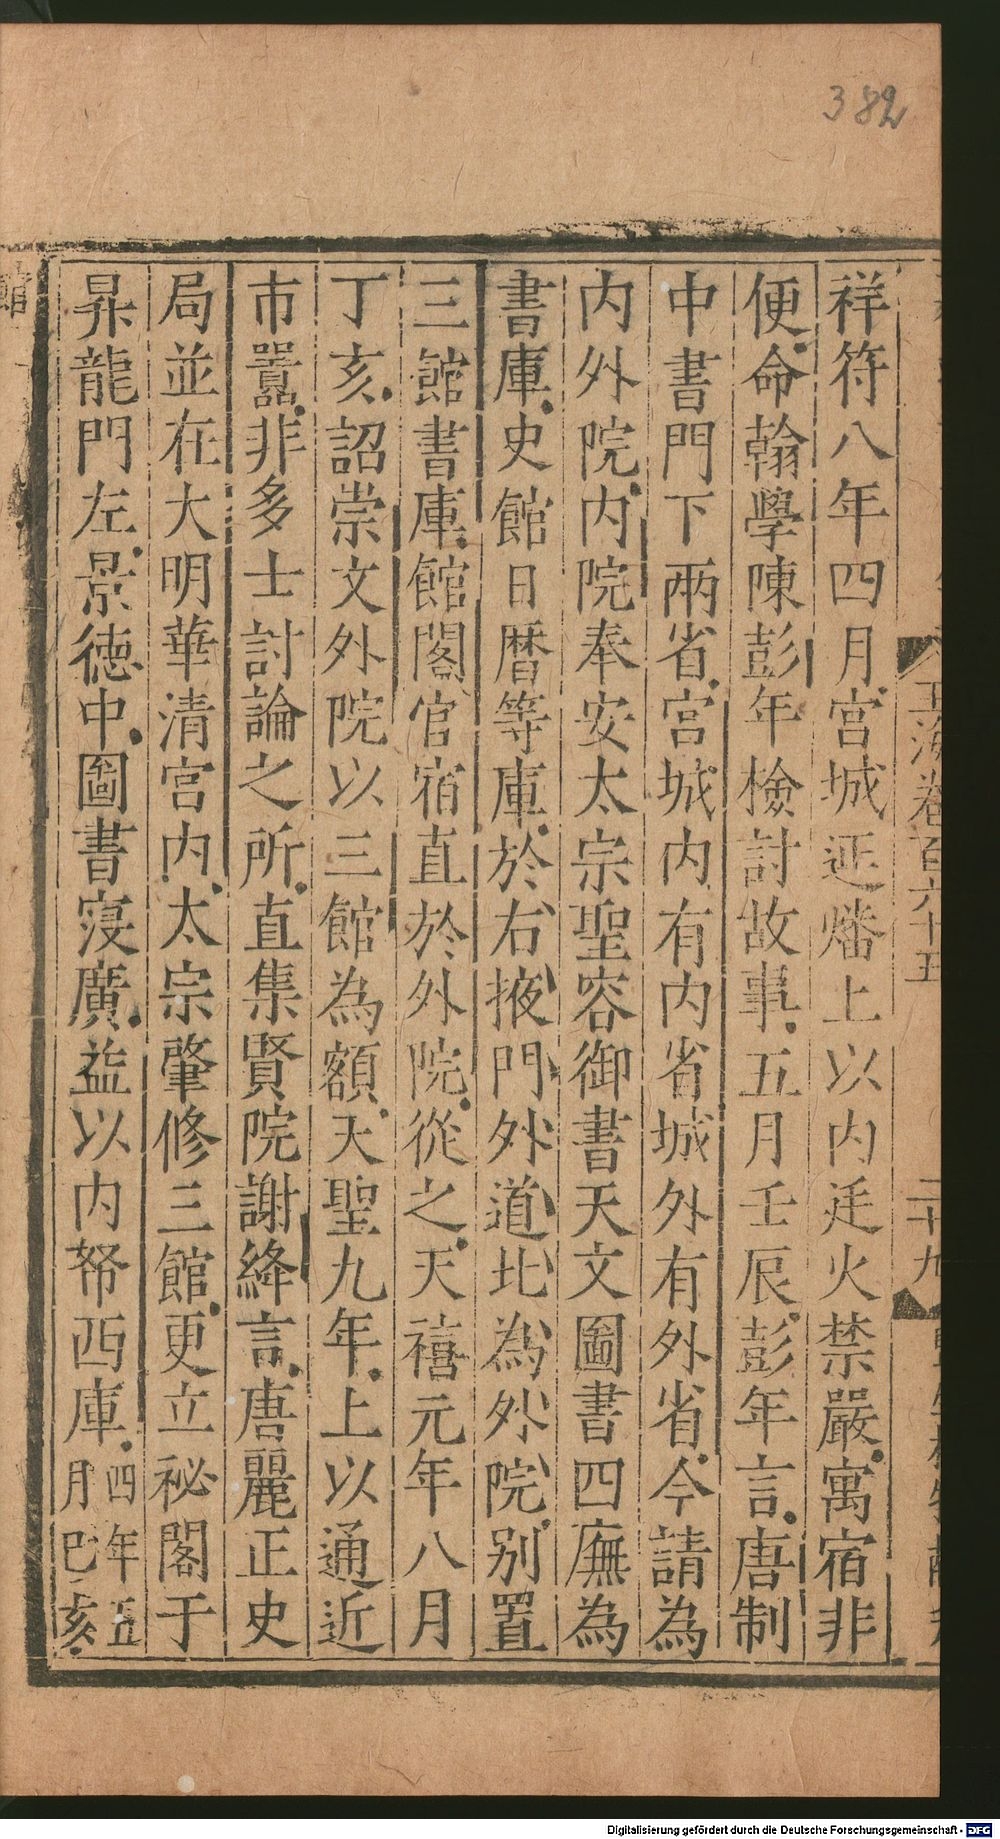 382
玉海卷百六十五
二十九
祥符八年四月宮城延燔上以内廷火禁嚴寓宿非
便命翰學陳彭年檢討故事五月壬辰彭年言唐制
中書門下兩省宮城内有内省城外有外省今請為
内外院内院奉安太宗聖容御書天文圖書四廡為
書庫史館日曆等庫於右掖門外道北為外院别置
三館書庫館閣官宿直於外院從之天禧元年八月
丁亥詔崇文外院以三館為額天聖九年上以通近
市囂非多士討論之所直集賢院謝絳言唐麗正史
局並在大明華清宮内太宗肇修三館更立祕閣于
昇龍門左景德中圖書寖廣益以内帑西庫四年五
月巳亥
館
Digitalisierung gefördert durch die Deutsche Forschungsgemeinschaft - DFG